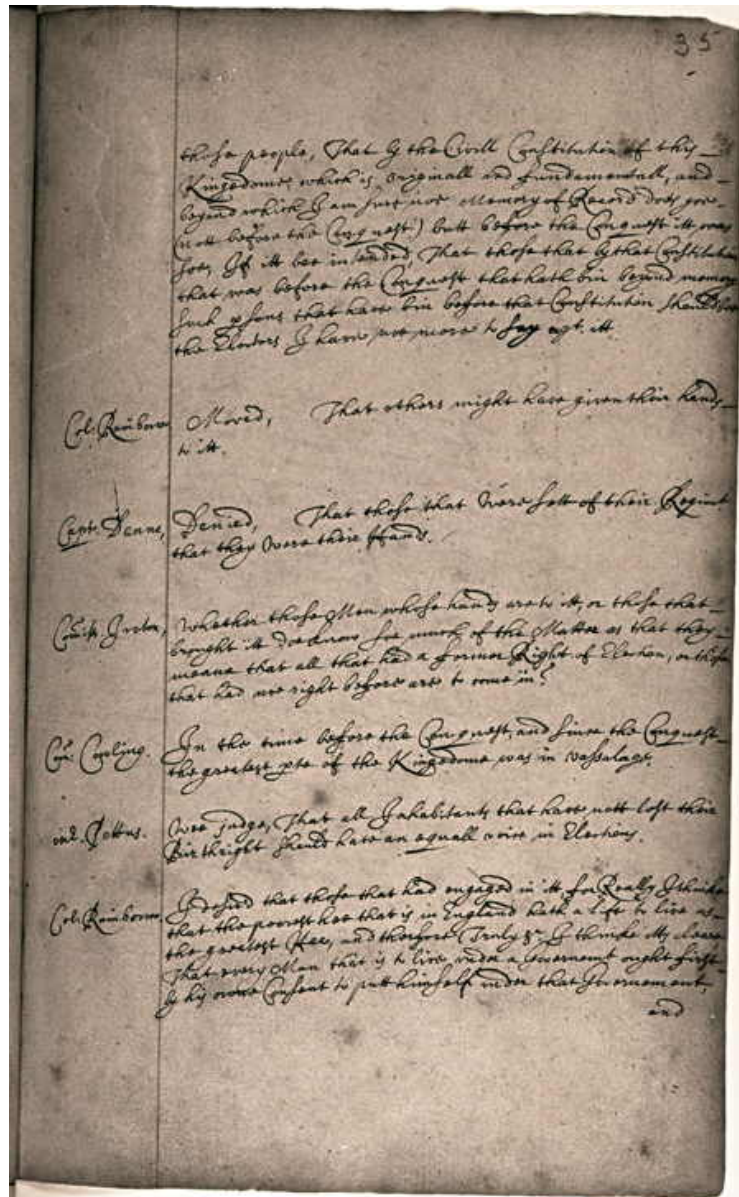 35
those people, That by the Civill Constitution of this
Kingedome, which is originall and fundamentall, and
beyond which I am sure noe Memory of Record does goe
(nott before the Conquest) butt before the Conquest itt was
soe. If itt bee intended, That those that by that Constitution
that was before the Conquest that hath bin beyond memory
such psons that have bin before that Constitution should bee
the Electors I have noe more to say agt. itt.
Col. Rainborow Moved, That others might have given their hands
to itt.
Capt. Denne, Denied, That those that were sett of their Regimt
that they were their hands.
Ireton, Whether those Men whose hands are to itt, or those that
brought itt doe know soe much of the Matter as that they
meane that all that had a former Right of Election, or those
that had noe right before are to come in?
Cowling. In the time before the Conquest, and since the Conquest
the greatest pte of the Kingedome was in vassalage.
Pettus. Wee judge, That all Inhabitants that have nott lost their
Birthright should have an equall voice in Elections.
Col. Rainborow, I desired that those that had engaged in itt for Really I thinke
that the poorest hee that is in England hath a life to live as
the greatest Hee, and therfore Truly Sr. I thinke itts cleare
That every Man that is to live under a Governemt ought first
by his owne Consent to putt himself under that Governement,
and